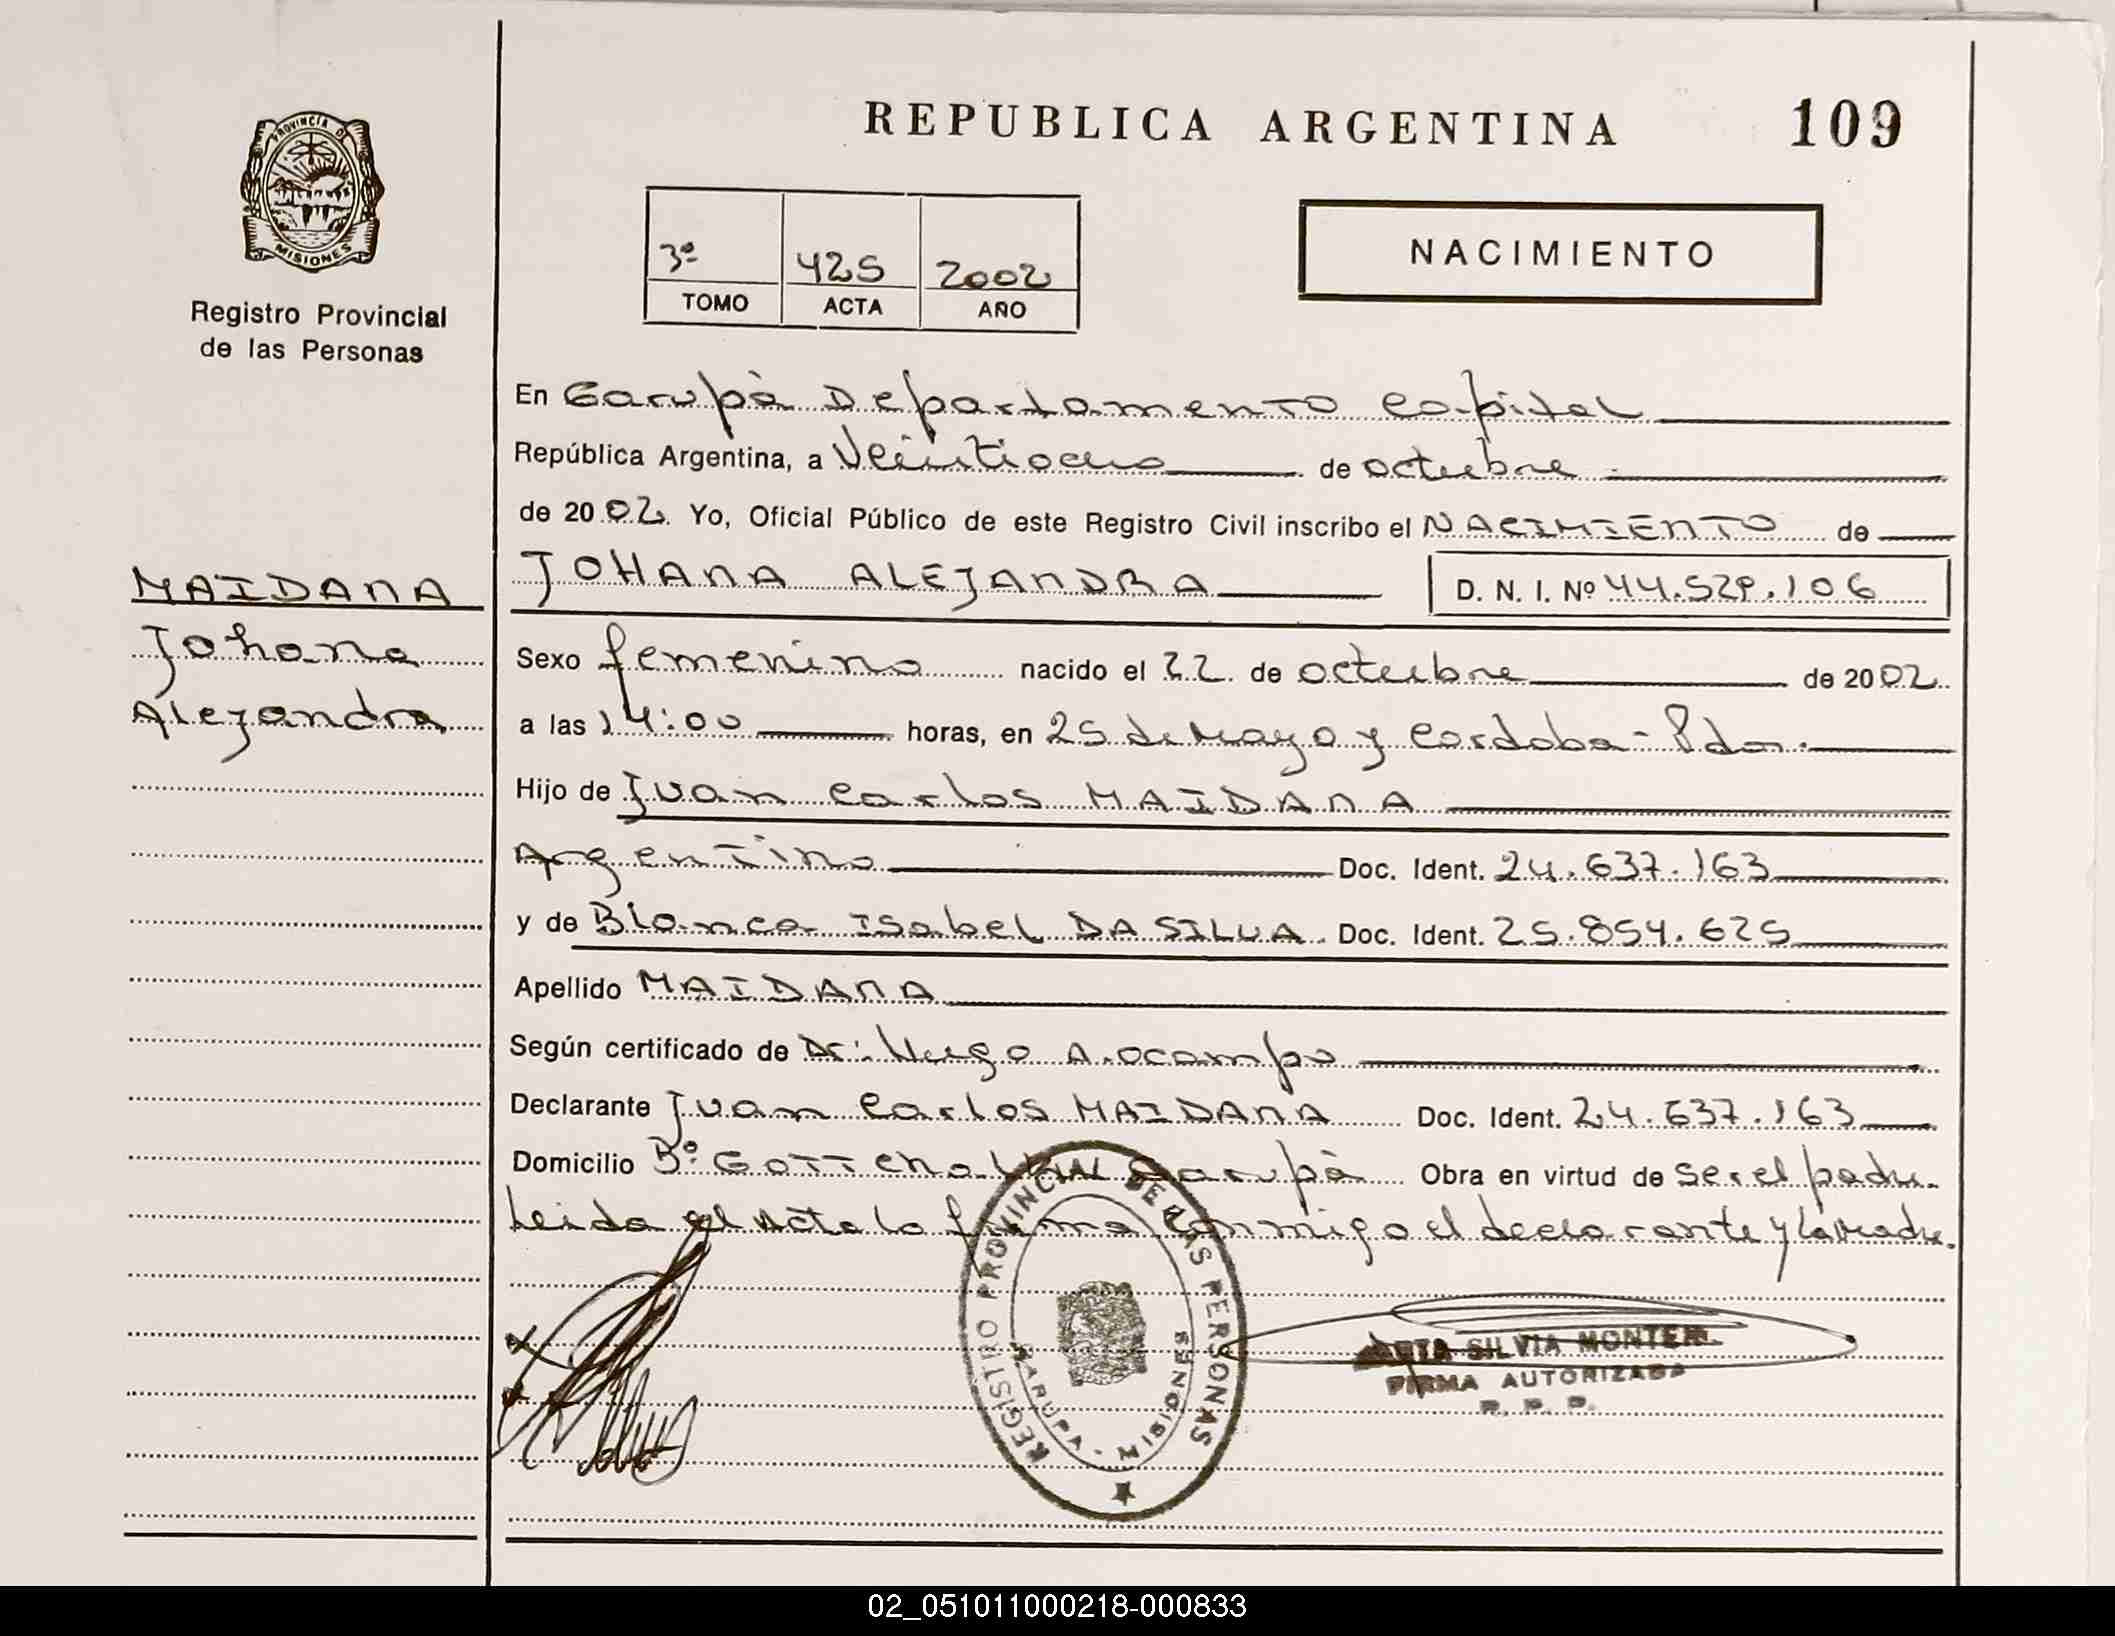 REPUBLICA ARGENTINA 109
PROVINCIA DE MISIONES
Registro Provincial
de las Personas
3º 425 2002
TOMO ACTA AÑO
NACIMIENTO
En Garupà Departamento Capital
República Argentina, a Veintiocho de octubre
de 2002. Yo, Oficial Público de este Registro Civil inscribo el NACIMIENTO de
MAIDANA
Johana
Alejandra
JOHANA ALEJANDRA D. N. I. Nº 44.529.106
Sexo femenino nacido el 22 de octubre de 2002
a las 14:00 horas, en 25 de Mayo y Cordoba - Pdas.
Hijo de Juan Carlos MAIDANA
Argentino Doc. Ident. 24.637.163
y de Blanca Isabel DA SILVA. Doc. Ident. 25.854.625
Apellido MAIDANA
Según certificado de Dr. Hugo A. Ocampo
Declarante Juan Carlos MAIDANA Doc. Ident. 24.637.163
Domicilio Bº Garupà Obra en virtud de ser el padre.
Leida el Acta la firma conmigo el declarante y la madre.
REGISTRO PROVINCIAL DE LAS PERSONAS
GARUPA - MISIONES
SILVIA
FIRMA AUTORIZADA
R. P. P.
02_051011000218-000833